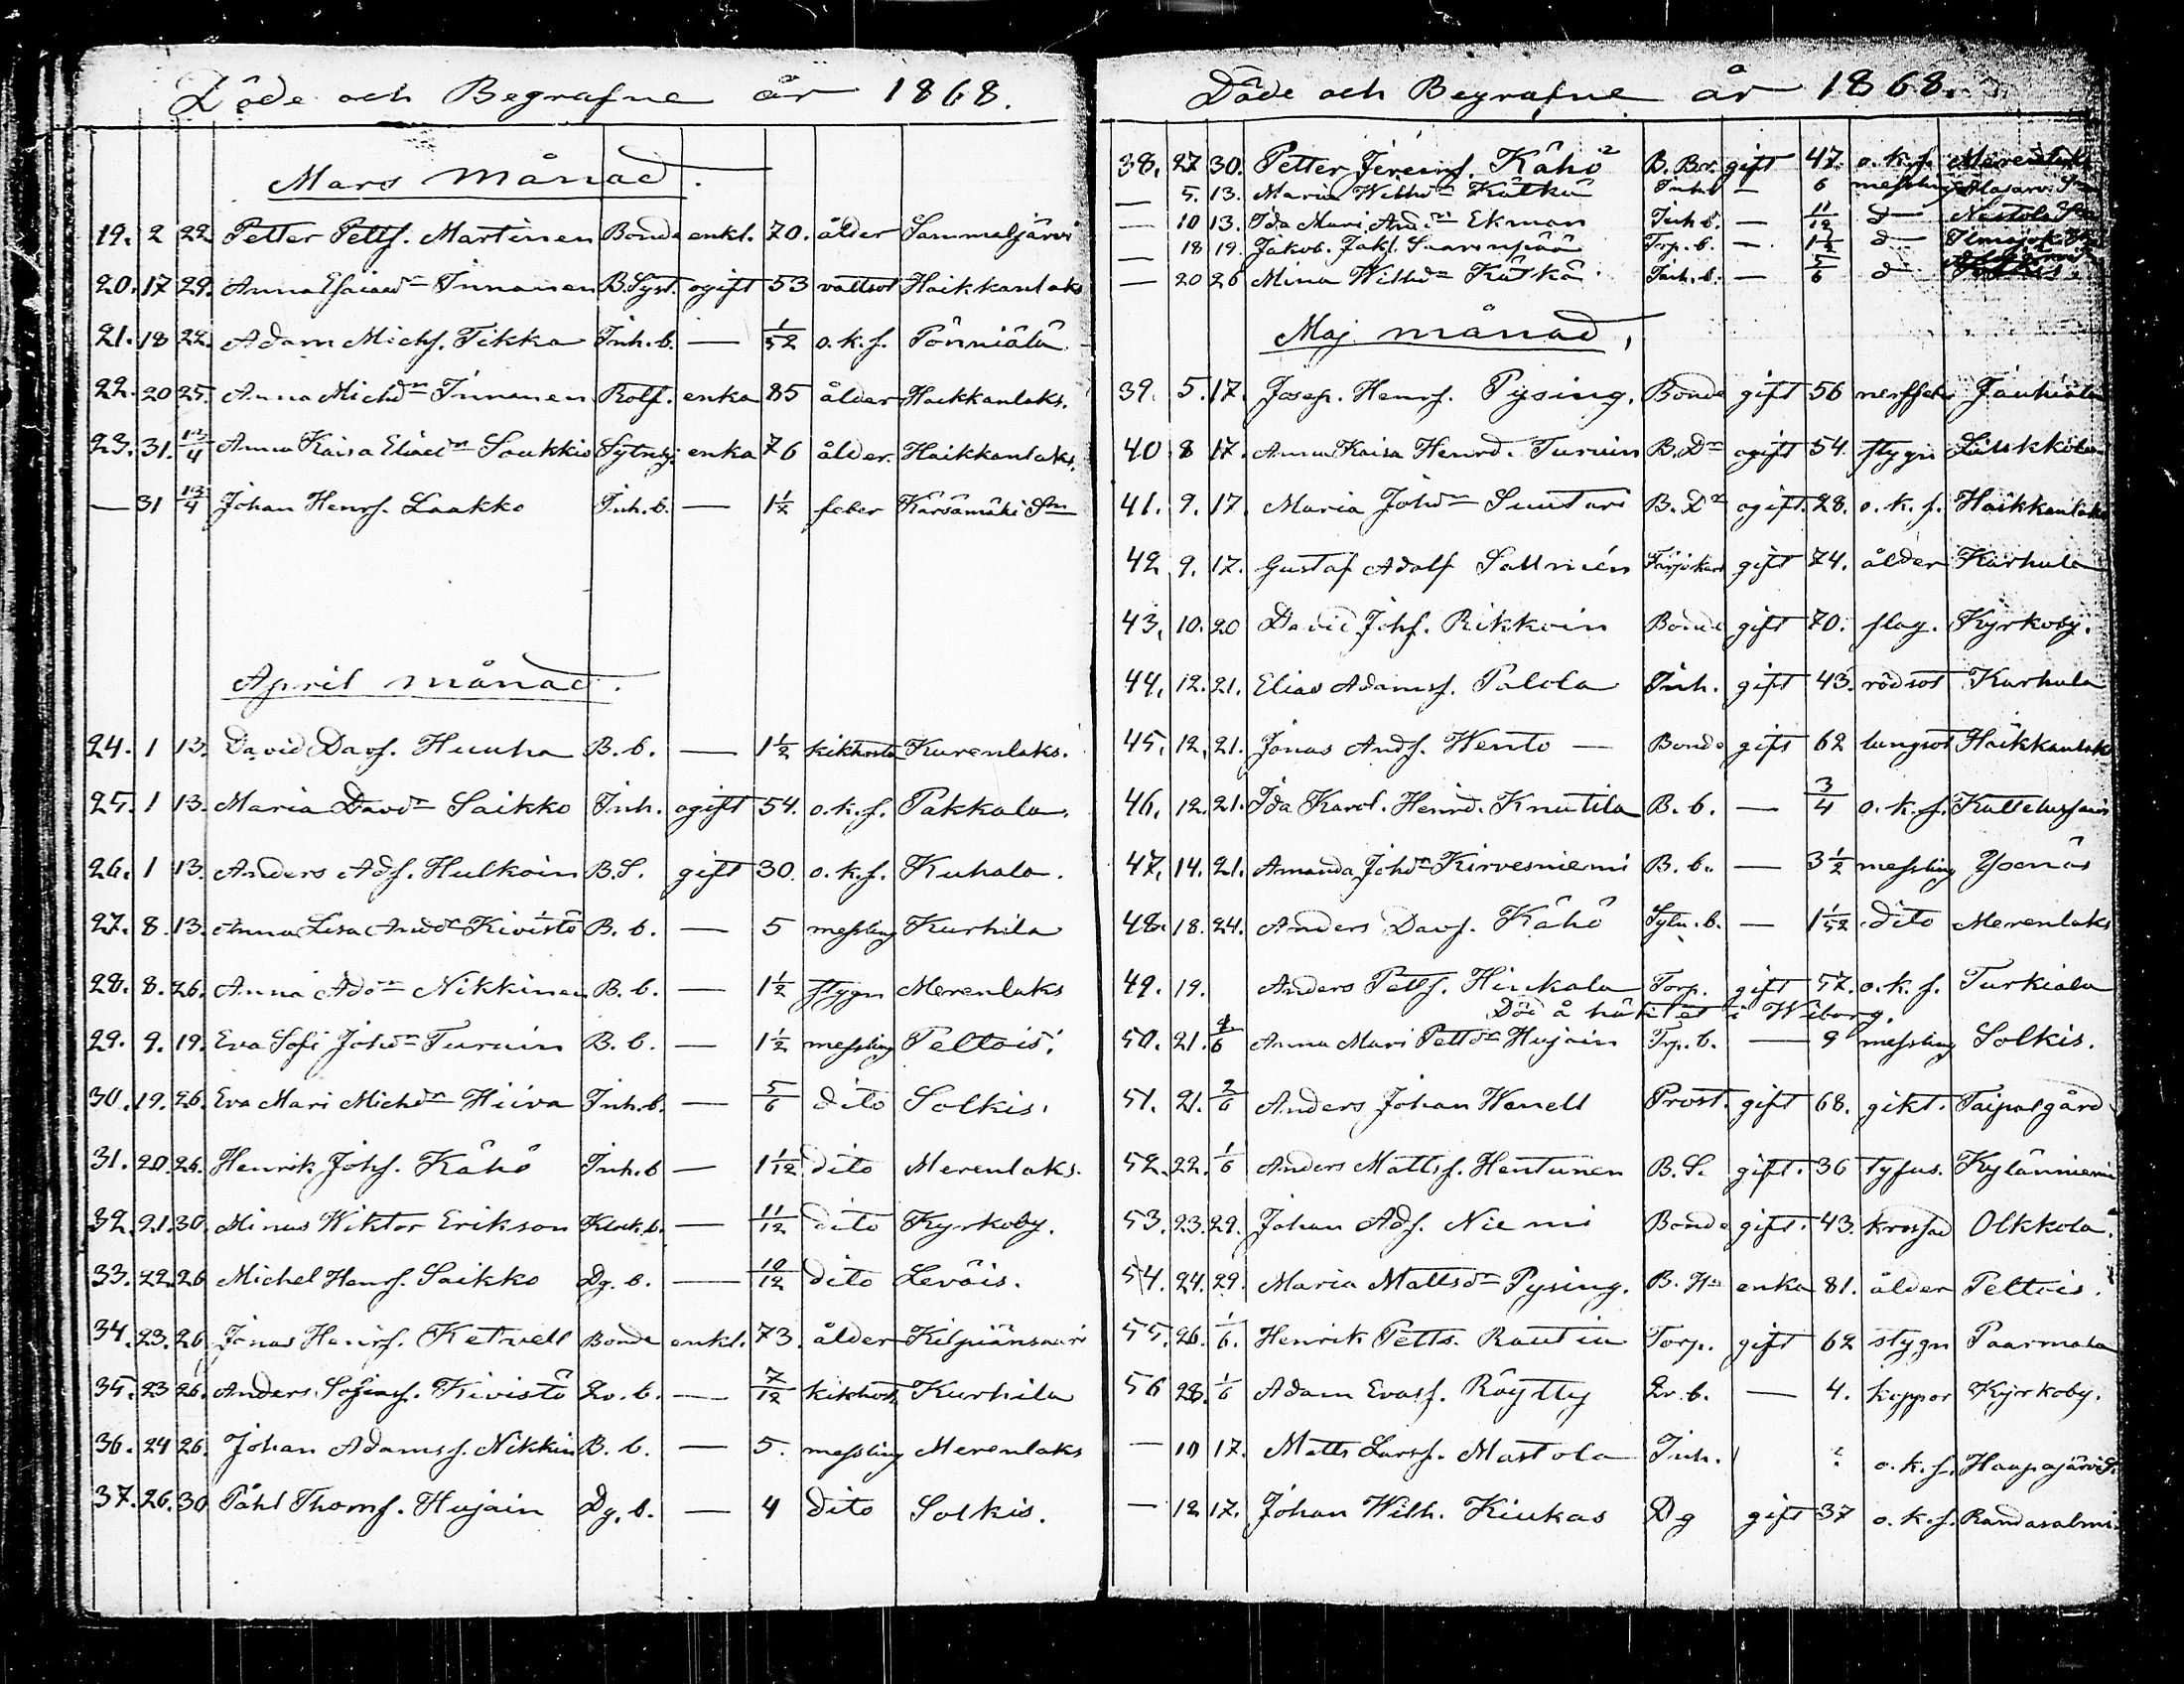 Döde och Begrafne år 1868.
Mars månad.
19. 2 22 Petter Petts. Martinen Bonde enkl. 70. ålder Sammaljärvi
20. 17 29. Anna Esaiasdr Innanen B.Syst. ogift 53 vattsot Haikkanlaks
21. 18 22. Adam Michs. Tikka Inh. b. — 1/52 o.k.s. Pönniälä
22. 20 25. Anna Michdr Innanen Rotf. enka 85 ålder Haikkanlaks.
23. 31. 13/4 Anna Kaisa Eliaedr Saukkio enka 76 ålder. Haikkanlaks.
— 31 13/4 Johan Henrs. Laakko Inh. b. — 1½ feber Kärsämäki Sn
April månad.
24. 1 13. David Davs. Huuha B. b. — 1½ kikhosta Kurenlaks.
25. 1 13. Maria Davdr Saikko Inh. ogift 54. o.k.s. Pakkala.
26. 1 13. Anders Ads. Hulkoin B.S. gift 30. o.k.s. Kuhala.
27. 8. 13. Anna Lisa Anddr Kivistö B. b. — 5 messling Kurhila
28. 8. 26. Anna Addr Nikkinen B. b. — 1½ stygn Merenlaks
29. 9. 19. Eva Sofi Johdr Turuin B. b. — 1½ messling Peltois.
30. 19. 26. Eva Mari Michdr Hiiva Inh. b. — 5/6 dito Solkis.
31. 20. 26. Henrik Johs. Kähö Inh. b — 1 1/12 dito Merenlaks.
32. 21. 30. Minus Wiktor Erikson Klock. b. — 11/12 dito Kyrkoby.
33. 22. 26 Michel Henrs. Saikko Dg. b. — 10/12 dito Leväis.
34. 23. 26 Jonas Henrs. Ketvell Bonde enkl. 73. ålder Kilpiänsaari
35. 23 26. Anders Sofiæs. Kivistö Lv. b. — 7/12 kikhost. Kurhila
36. 24 26. Johan Adamss. Nikkin B. b. — 5. messling Merenlaks
37. 26. 30 Påhl Thoms. Hujain Dg. b. — 4 dito Solkis.
Döde och Begrafne år 1868.
38. 27 30. Petter Jerems. Kähö B. Br. gift 47. o.k.s. Merenlaks
— 5. 13. Maria Willdr Kätkä Inh. b — 6 messling Alajärv. Sn
— 10 13. Ida Mari Anddr Ekman Inh. b. — 11/12 d— Nastola Sn
— 18 19. Jakob Jaks. Trp. b. — 1½ d—
— 20 26 Mina Willdr Kätkä Inh. b. — 5/6 d—
Maj månad.
39. 5. 17. Josep. Henrs. Pysing. Bonde gift 56 Jäuhiälä
40 8 17. Anna Kaisa Henrd. Turuin B. Dr ogift 54. stygn
41. 9. 17. Maria Johdr Suutari B. Dr ogift. 28. o.k.s. Haikkanlaks
42. 9. 17. Gustaf Adolf Sallmén Färjekarl gift 74. ålder Kärhula
43. 10. 20 David Johs. Rikkoin Bonde gift 70. slag. Kyrkoby.
44. 12. 21. Elias Adamss. Palola Inh. gift 43. rödsot Karhula
45. 12. 21. Jonas Ands. Wento — Bonde gift 62 lungsot Haikkanlaks
46. 12. 21. Ida Karol. Henrd. Knutila B. b. — 3/4 o.k.s.
47. 14. 21. Amanda Johdr Kirvesniemi B. b. — 3½ messling Yxenäs
48. 18. 24. Anders Davs. Kähö Sytn. b. — 1 1/52 dito Merenlaks
49. 19. Anders Petts. Hinkala Torp. gift 57. o.k.s. Turkiala
Död å häktet i Wiborg.
50. 21. 1/6 Anna Mari Pettdr Hujain Trp. b. — 9 messling Solkis.
51. 21. 2/6 Anders Johan Wenell Prost. gift 68. gikt. Taipal gård
52. 22. 1/6 Anders Mattss. Hentunen B. S. gift. 36 tyfus. Kylänniemi
53. 23. 29. Johan Ads. Niemi Bonde gift. 43. krossad Olkkola.
54. 24. 29. Maria Mattsdr Pysing. B. Hu enka 81. ålder Peltois.
55. 26. 1/6. Henrik Petts. Rautia Torp. gift 62 stygn Paarmala
56 28. 1/6 Adam Evass. Röytty Lv. b. — 4. koppor Kyrkoby.
— 10 17. Matts Larss. Mastola Inh. ? o.k.s. Haapajärvi S.
— 12 17. Johan Wilh. Kiukas Dg gift 37 o.k.s. Randasalmi.